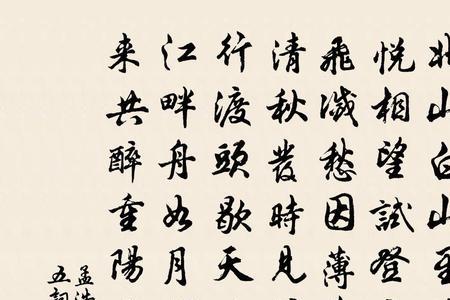 北山白
悅相望試登
飛滅愁因薄
清秋發時見
行渡頭歇天
江畔舟如月
来共醉重陽
孟浩
五